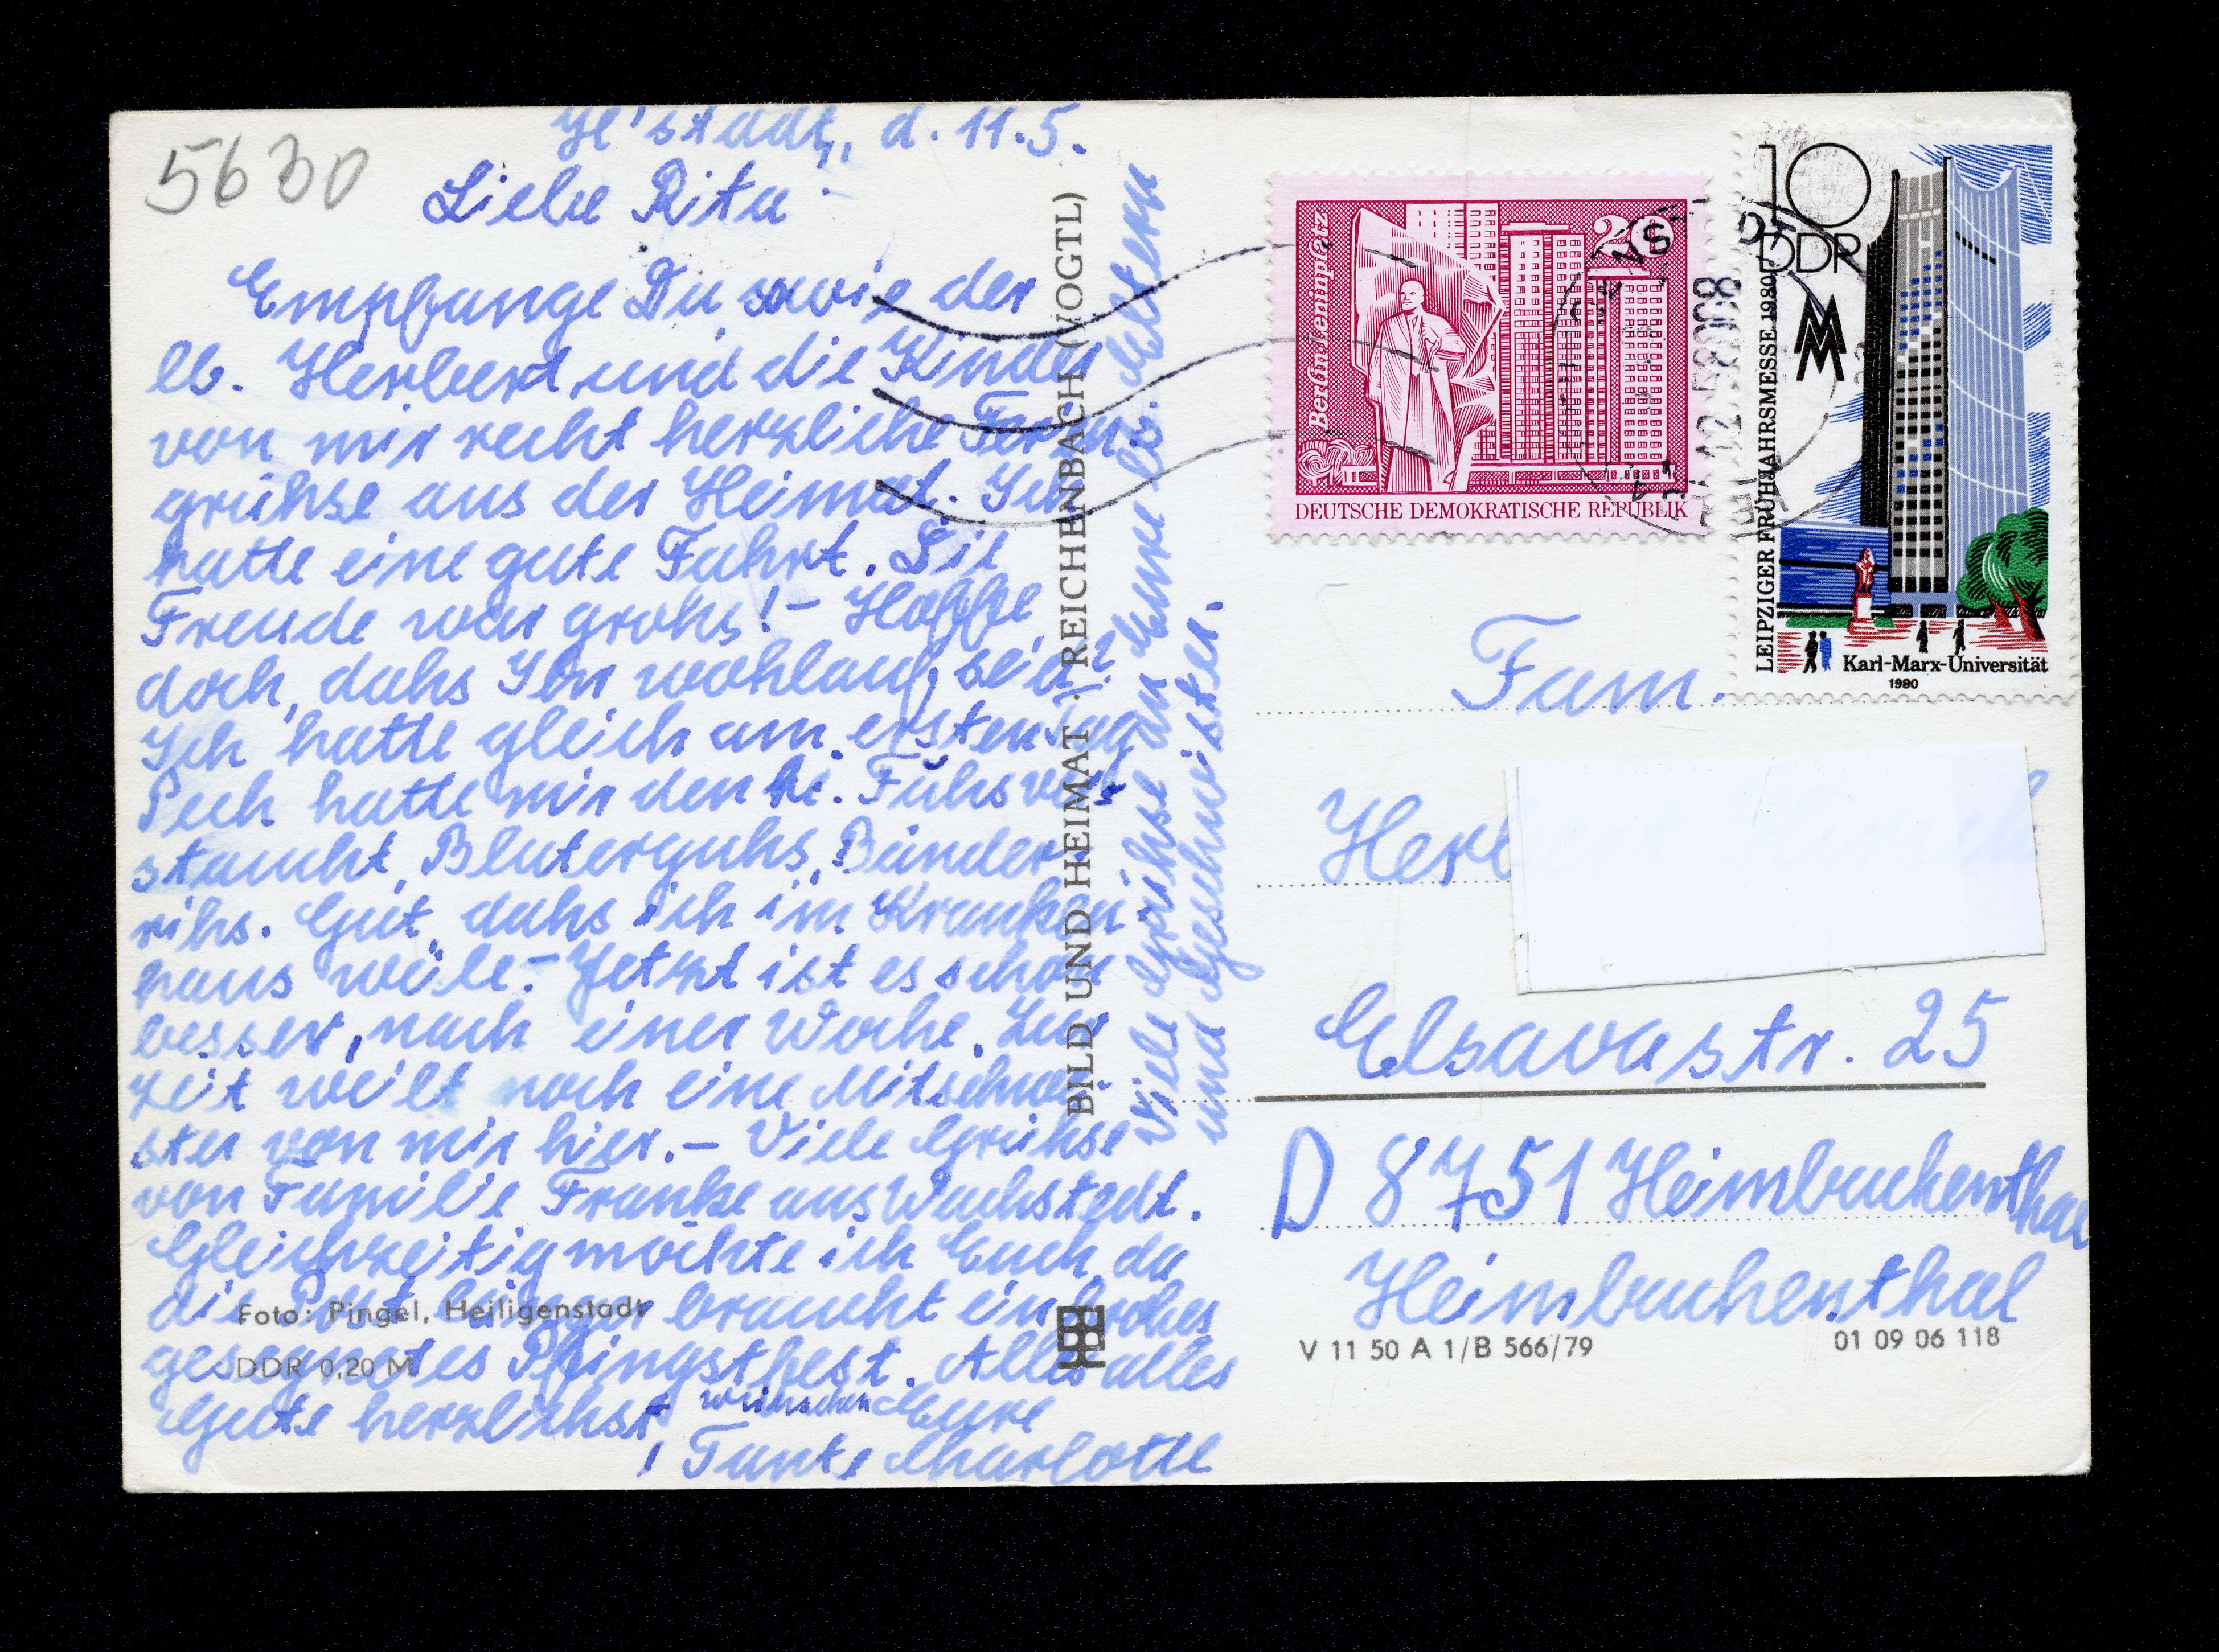 5630
H'stadt, d. 11.5.
Liebe Rita!
Empfange Du sowie der
lb. Herbert und die Kinder
von mir recht herzliche Fern
grühse aus der Heimat. Ich
hatte eine gute Fahrt. Die
Freude war grohs! – Hoffe
doch, dahs Ihr wohlauf seid?
Ich hatte gleich am ersten Tag
Pech hatte mir den li. Fuhs ver
staucht, Bluterguhs, Bänder
rihs. Gut, dahs ich im Kranken
haus weile. – Jetzt ist es schon
besser, nach einer Woche. Zur
Zeit weilt noch eine Mitschwe-
ster von mir hier. – Viele Grühse
von Familie Franke aus Wachstedt.
Gleichzeitig möchte ich Euch da
die Post länger braucht ein frohes
gesegnetes Pfingstfest. Alles alles
Gute herzlichst wünschen Eure
Tante Charlotte
Viele Grühse an Eure lb. Eltern
und Geschwister.
BILD UND HEIMAT · REICHENBACH (VOGTL)
Foto: Pingel, Heiligenstadt
DDR 0,20 M
Berlin-Leninplatz
20
DEUTSCHE DEMOKRATISCHE REPUBLIK
10
DDR
MM
LEIPZIGER FRÜHJAHRSMESSE 1980
Karl-Marx-Universität
1980
Fam.
Elsavastr. 25
D 8751 Heimbuchenthal
Heimbuchenthal
V 11 50 A 1/B 566/79
01 09 06 118